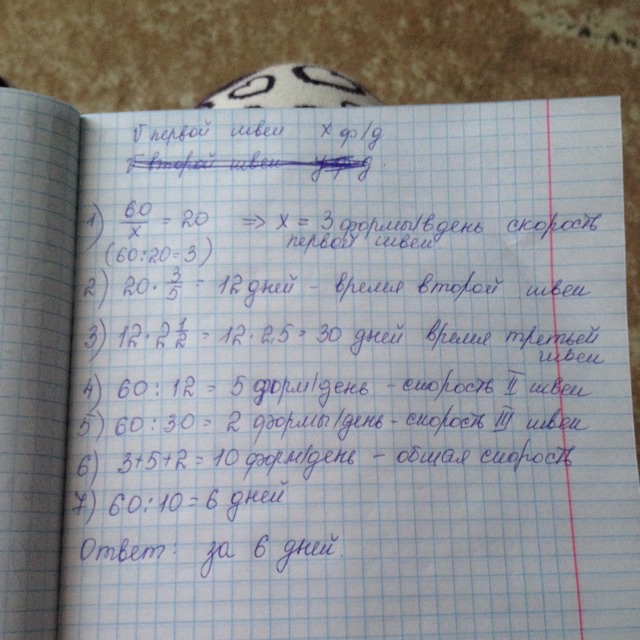 V первой швеи x ф/д
1) 60/x = 20 => x = 3 формы/в день скорость
(60:20=3) первой швеи
2) 20 · 3/5 = 12 дней - время второй швеи
3) 12 · 2 1/2 = 12 · 2,5 = 30 дней время третьей
швеи
4) 60 : 12 = 5 форм/день - скорость II швеи
5) 60 : 30 = 2 формы/день - скорость III швеи
6) 3+5+2 = 10 форм/день - общая скорость
7) 60 : 10 = 6 дней
Ответ: за 6 дней.